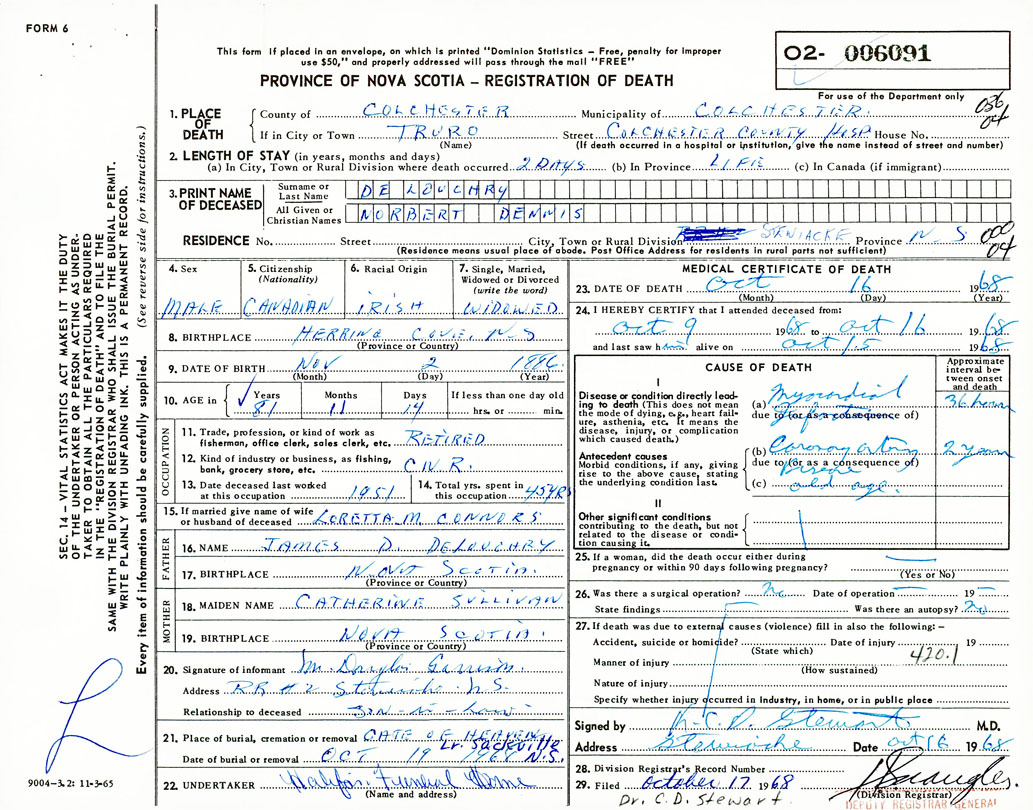 FORM 6
This form if placed in an envelope, on which is printed "Dominion Statistics – Free, penalty for improper
use $50," and properly addressed will pass through the mail "FREE"
PROVINCE OF NOVA SCOTIA – REGISTRATION OF DEATH
02- 006091
For use of the Department only
036
04
1. PLACE OF DEATH
County of COLCHESTER Municipality of COLCHESTER.
If in City or Town TRURO Street COLCHESTER COUNTY HOSP House No.
(Name) (If death occurred in a hospital or institution, give the name instead of street and number)
2. LENGTH OF STAY (in years, months and days)
(a) In City, Town or Rural Division where death occurred 2 DAYS (b) In Province LIFE (c) In Canada (if immigrant)
3. PRINT NAME OF DECEASED
Surname or Last Name DE LOUCHRY
All Given or Christian Names NORBERT DENNIS
RESIDENCE No. Street City, Town or Rural Division Province N.S
(Residence means usual place of abode. Post Office Address for residents in rural parts not sufficient)
000
04
4. Sex 5. Citizenship (Nationality) 6. Racial Origin 7. Single, Married, Widowed or Divorced (write the word)
MALE CANADIAN IRISH WIDOWED
8. BIRTHPLACE HERRING COVE, N.S
(Province or Country)
9. DATE OF BIRTH NOV 2 1886
(Month) (Day) (Year)
10. AGE in Years Months Days If less than one day old
81 11 14 hrs. or min.
OCCUPATION
11. Trade, profession, or kind of work as fisherman, office clerk, sales clerk, etc. RETIRED
12. Kind of industry or business, as fishing, bank, grocery store, etc. C.N.R.
13. Date deceased last worked at this occupation 1951
14. Total yrs. spent in this occupation 45 YRS
15. If married give name of wife or husband of deceased LORETTA M. CONNORS
FATHER
16. NAME JAMES D. DELOUCHRY
17. BIRTHPLACE NOVA SCOTIA.
(Province or Country)
MOTHER
18. MAIDEN NAME CATHERINE SULLIVAN
19. BIRTHPLACE NOVA SCOTIA.
(Province or Country)
20. Signature of informant Mr. Douglas
Address RR #2 N.S.
Relationship to deceased Son-in-law
21. Place of burial, cremation or removal GATE OF HEAVEN
Lr. Sackville N.S.
Date of burial or removal OCT 19 1968
22. UNDERTAKER Halifax Funeral Home
(Name and address)
MEDICAL CERTIFICATE OF DEATH
23. DATE OF DEATH Oct 16 1968
(Month) (Day) (Year)
24. I HEREBY CERTIFY that I attended deceased from:
Oct 9 1968 to Oct 16 1968
and last saw him alive on Oct 15 1968
CAUSE OF DEATH
Approximate interval between onset and death
I
Disease or condition directly leading to death (This does not mean the mode of dying, e.g., heart failure, asthenia, etc. It means the disease, injury, or complication which caused death.)
(a) Myocardial Infarction 36 hours
due to (or as a consequence of)
Antecedent causes
Morbid conditions, if any, giving rise to the above cause, stating the underlying condition last.
(b) Coronary artery Disease 2 years
due to (or as a consequence of)
(c) old age.
II
Other significant conditions contributing to the death, but not related to the disease or condition causing it.
25. If a woman, did the death occur either during pregnancy or within 90 days following pregnancy?
(Yes or No)
26. Was there a surgical operation? No Date of operation 19
State findings Was there an autopsy? No
27. If death was due to external causes (violence) fill in also the following: –
Accident, suicide or homicide? Date of injury 19
(State which)
420.1
Manner of injury
(How sustained)
Nature of injury
Specify whether injury occurred in industry, in home, or in public place
Signed by C.D. Stewart M.D.
Address Stewiacke Date Oct 16 1968
28. Division Registrar's Record Number
29. Filed October 17 1968
(Division Registrar)
DEPUTY REGISTRAR GENERAL
Dr. C.D. Stewart
9004-3.2: 11-3-65
SEC. 14 – VITAL STATISTICS ACT MAKES IT THE DUTY
OF THE UNDERTAKER OR PERSON ACTING AS UNDER-
TAKER TO OBTAIN ALL THE PARTICULARS REQUIRED
IN THE "REGISTRATION OF DEATH" AND TO FILE THE
SAME WITH THE DIVISION REGISTRAR WHO SHALL ISSUE THE BURIAL PERMIT.
WRITE PLAINLY WITH UNFADING INK. THIS IS A PERMANENT RECORD.
Every item of information should be carefully supplied. (See reverse side for instructions.)